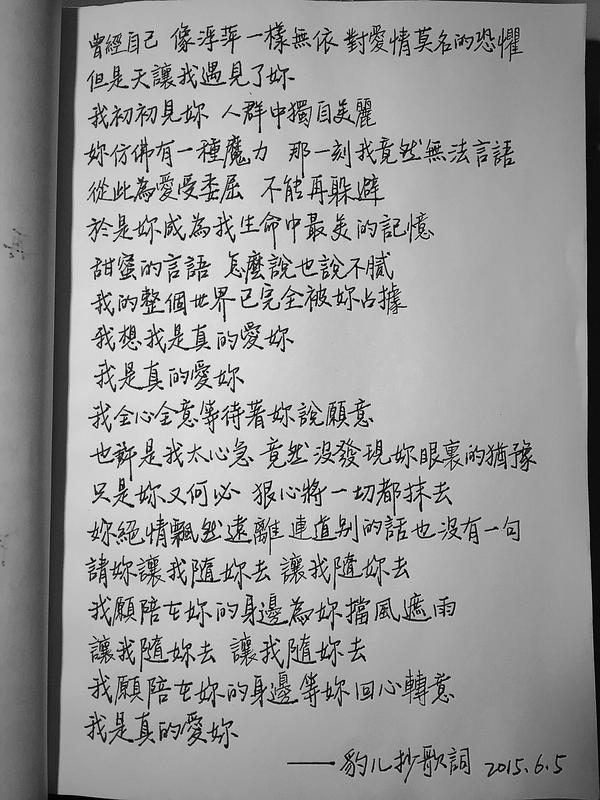 曾經自己 像浮萍一樣無依 對愛情莫名的恐懼
但是天讓我遇見了妳
我初初見妳 人群中獨自美麗
妳彷彿有一種魔力 那一刻我竟然無法言語
從此為愛受委屈 不能再躲避
於是妳成為我生命中最美的記憶
甜蜜的言語 怎麼說也說不膩
我的整個世界已完全被妳占據
我想我是真的愛妳
我是真的愛妳
我全心全意等待著妳說願意
也許是我太心急 竟然沒發現妳眼裏的猶豫
只是妳又何必 狠心將一切都抹去
妳絕情飄然遠離 連道別的話也沒有一句
請妳讓我隨妳去 讓我隨妳去
我願陪在妳的身邊為妳擋風遮雨
讓我隨妳去 讓我隨妳去
我願陪在妳的身邊等妳回心轉意
我是真的愛妳
——豹儿抄歌詞 2015.6.5